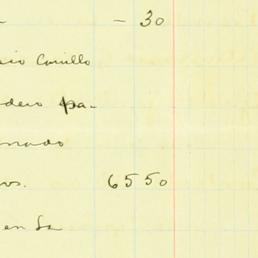 - 30
sio Carrillo
dero pa-
nado
os. 6550
en la